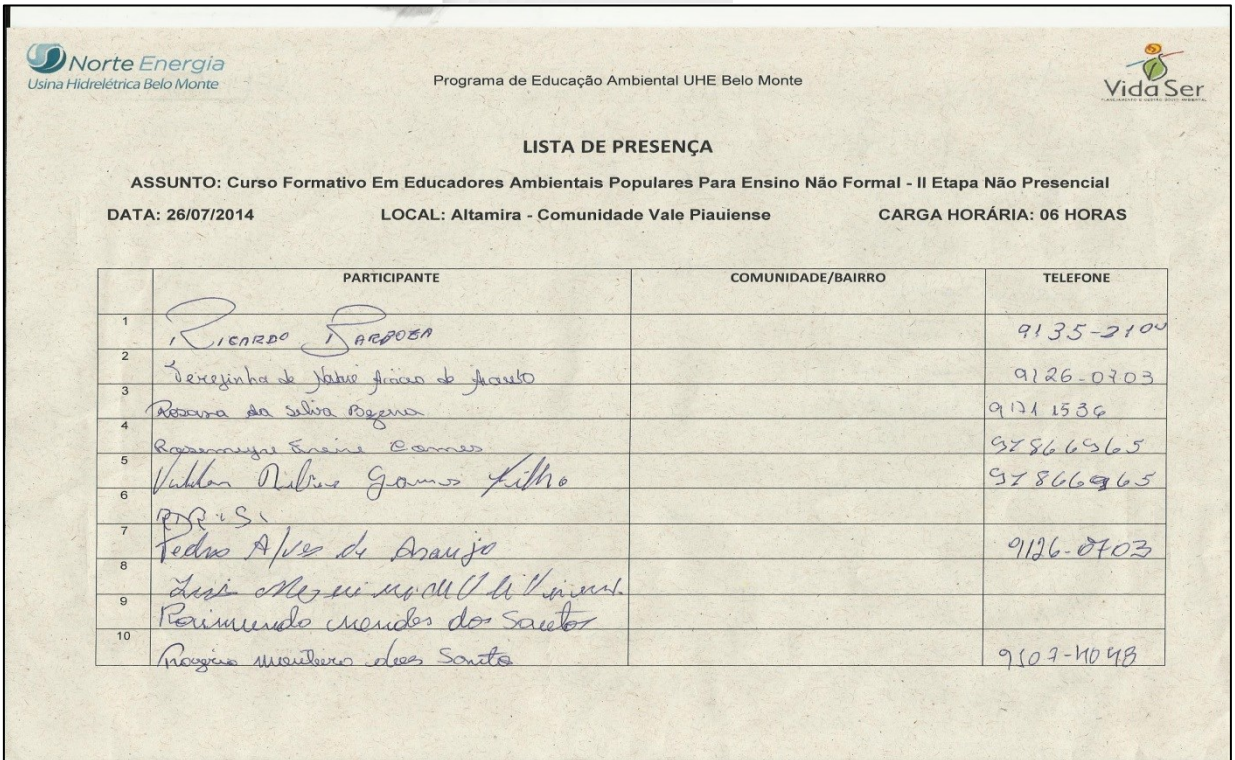 Norte Energia
Usina Hidrelétrica Belo Monte
Programa de Educação Ambiental UHE Belo Monte
Vida Ser
LISTA DE PRESENÇA
ASSUNTO: Curso Formativo Em Educadores Ambientais Populares Para Ensino Não Formal - II Etapa Não Presencial
DATA: 26/07/2014 LOCAL: Altamira - Comunidade Vale Piauiense CARGA HORÁRIA: 06 HORAS
PARTICIPANTE COMUNIDADE/BAIRRO TELEFONE
1 RICARDO BARBOZA 9135-2100
2 Terezinha de de 9126-0703
3 da Silva 1536
4 Gomes
5 Gomes Filho
6
7 Pedro Alves de Araujo 9126-0703
8
9 Raimundo mendes dos Santos
10 Rogério monteiro dos Santo